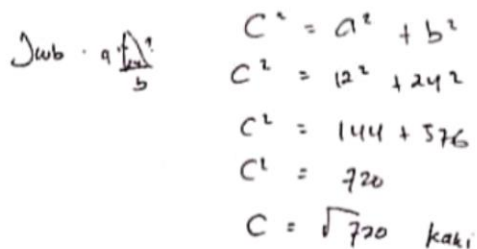 Jwb. a ?
b
C² = a² + b²
C² = 12² + 24²
C² = 144 + 576
C² = 720
C = √720 kaki